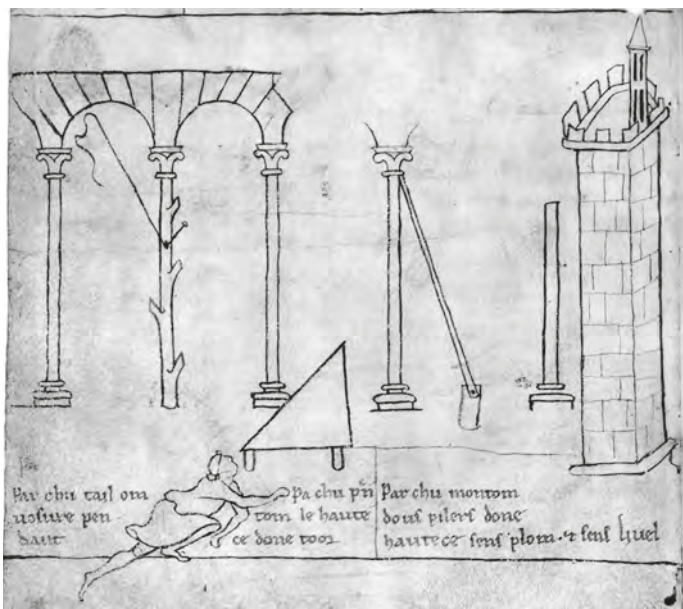 Par chu tail om
uosure pen
dant
Pa chu pñ
tom le haute
ce done toor
Par chu montom
dous pilers done
hautece sens plom ·⁊ sens liuel